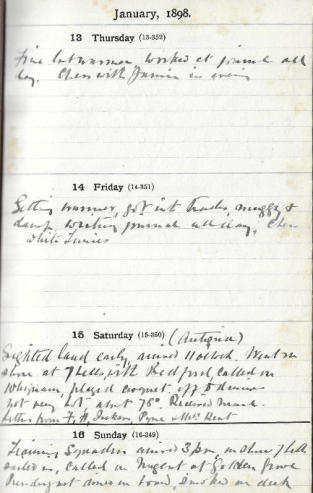 January, 1898.
13 Thursday (13-352)
Fine but warmer, worked at journal all
day. Chess with in evening
14 Friday (14-351)
Getting warmer, got into Trades, muggy &
damp, writing journal all day, Chess
15 Saturday (15-350) (Antigua)
Sighted land early, arrived 11 oclock. Went on
shore at 7 bells, with Bedford, called on
played croquet, off to dinner
not very hot, about 78°. Received mail
letters from F, H, Mrs Kent
16 Sunday (16-349)
Training Squadron arrived 3 pm, on shore 7 bells
called on Nugent at Golden Grove
dined on board, smoked on deck